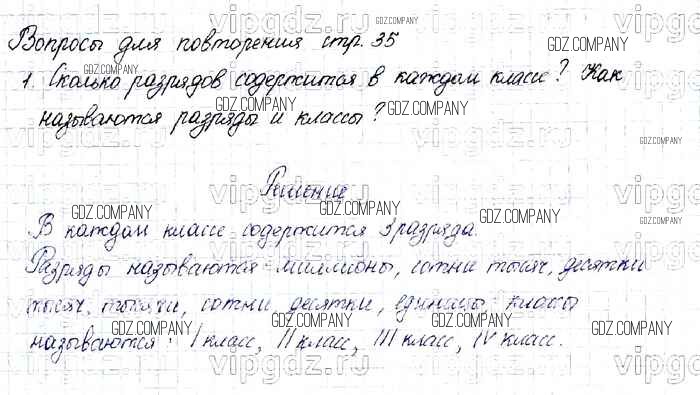 Вопросы для повторения стр. 35
1. Сколько разрядов содержится в каждом классе? Как
называются разряды и классы?
Решение
В каждом классе содержится 3 разряда.
Разряды называются - миллионы, сотни тысяч, десятки
тысяч, тысячи, сотни десятки, единицы, классы
называются: I класс, II класс, III класс, IV класс.
vipgdz.ru
GDZ.COMPANY